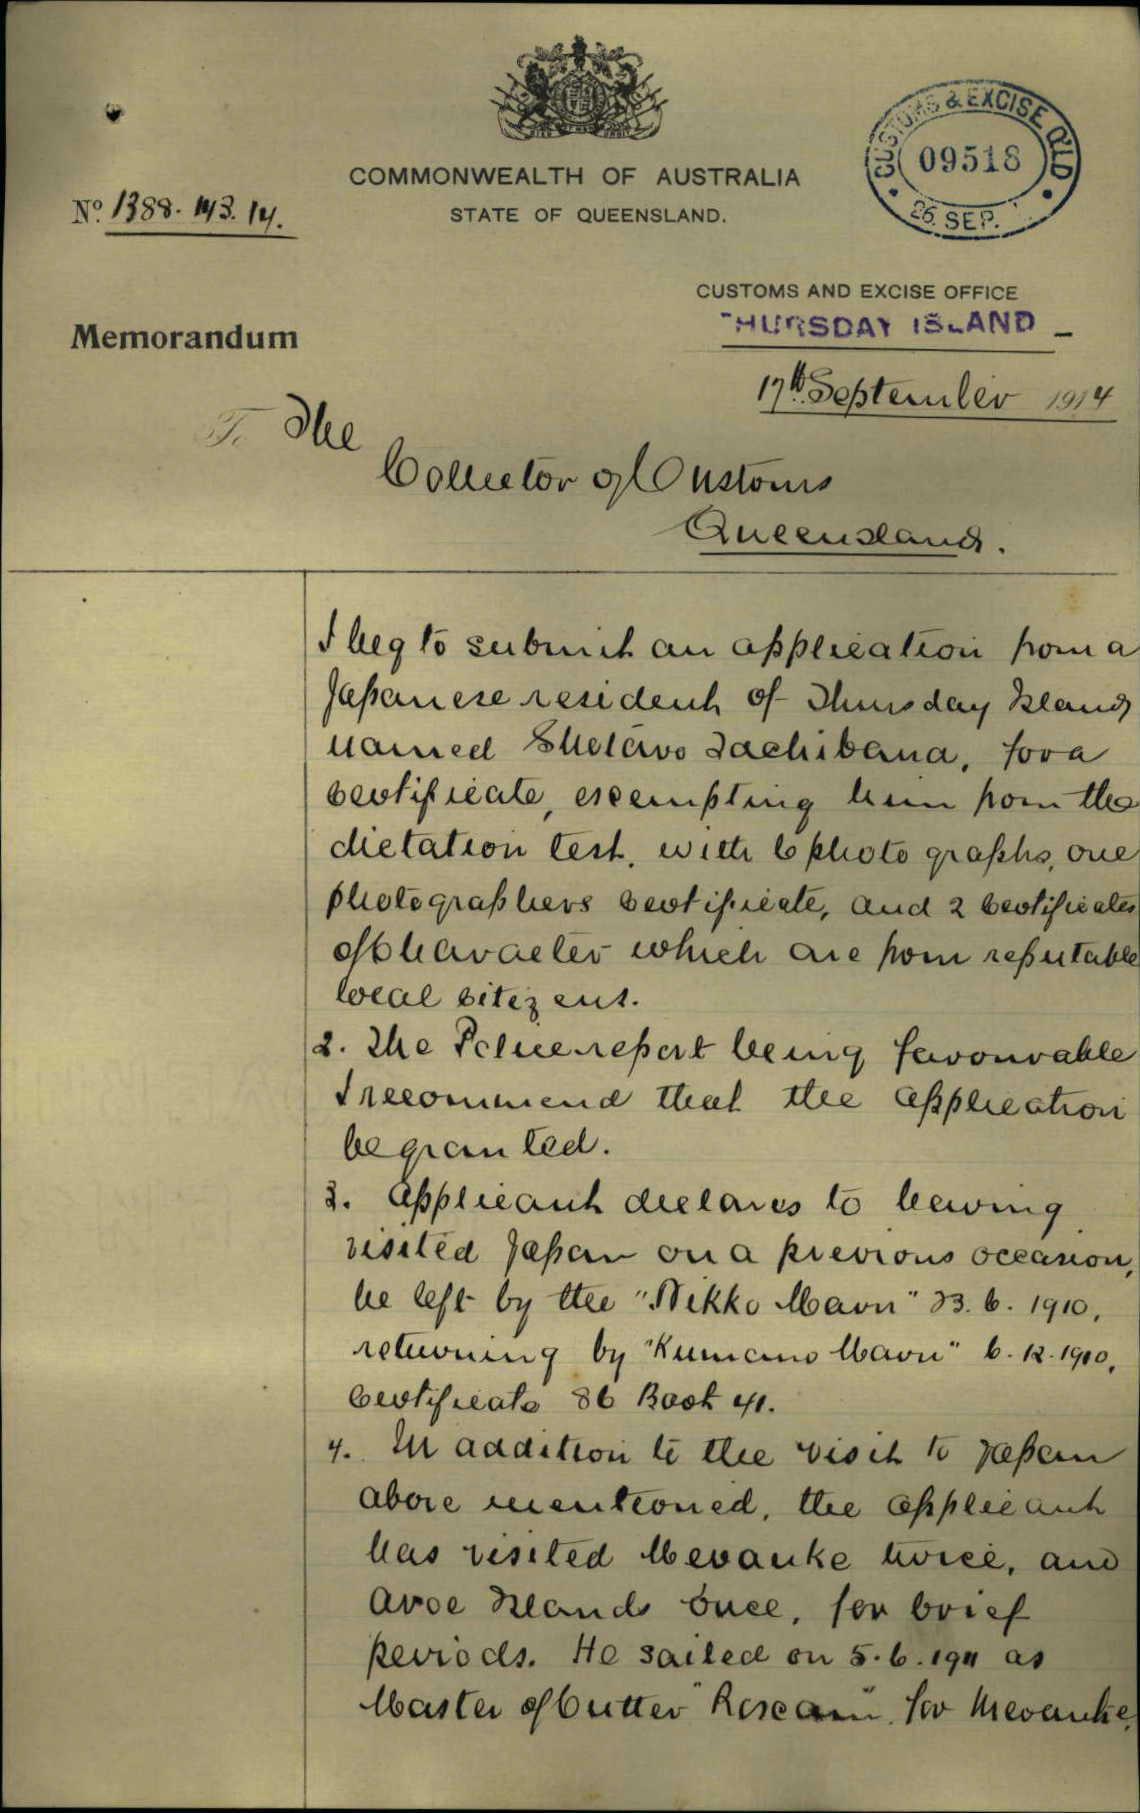 COMMONWEALTH OF AUSTRALIA
STATE OF QUEENSLAND.
CUSTOMS & EXCISE Q'LD
09518
26 SEP.
No. 1388. 143. 14.
CUSTOMS AND EXCISE OFFICE
THURSDAY ISLAND
Memorandum
17th September 1914
To The
Collector of Customs
Queensland.
I beg to submit an application from a
Japanese resident of Thursday Island
named Shotaro Tachibana, for a
certificate, exempting him from the
dictation test, with 6 photographs, one
photographers certificate, and 2 certificates
of character which are from reputable
local citizens.
2. The Police report being favourable
I recommend that the application
be granted.
3. Applicant declares to having
visited Japan on a previous occasion,
he left by the "Nikko Maru" 23. 6. 1910,
returning by "Kumano Maru" 6. 12. 1910,
Certificate 86 Book 41.
4. In addition to the visit to Japan
above mentioned, the applicant
has visited Merauke twice, and
Aroe Islands once, for brief
periods. He sailed on 5. 6. 1911 as
Master of Cutter for Merauke,